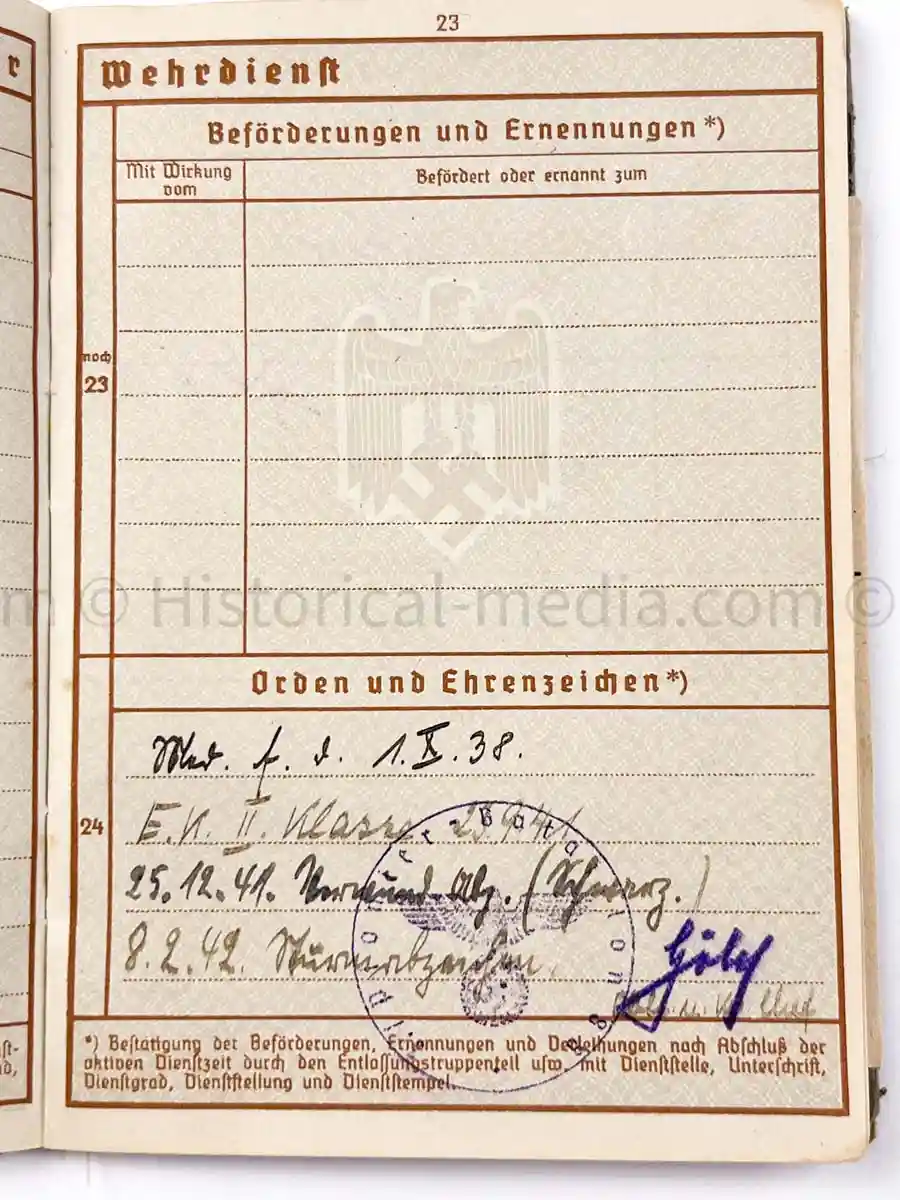 23
r
Wehrdienst
Beförderungen und Ernennungen *)
Mit Wirkung vom
Befördert oder ernannt zum
noch
23
m © Historical-media.com ©
Orden und Ehrenzeichen *)
24
Med. f. d. 1.X.38.
E.K. II. Klasse 23.9.41
25.12.41. Verwund. Abz. (Schwarz.)
8.2.42. Sturmabzeichen.
Pionier-Bataillon
*) Bestätigung der Beförderungen, Ernennungen und Verleihungen nach Abschluß der
aktiven Dienstzeit durch den Entlassungstruppenteil usw. mit Dienststelle, Unterschrift,
Dienstgrad, Dienststellung und Dienststempel.